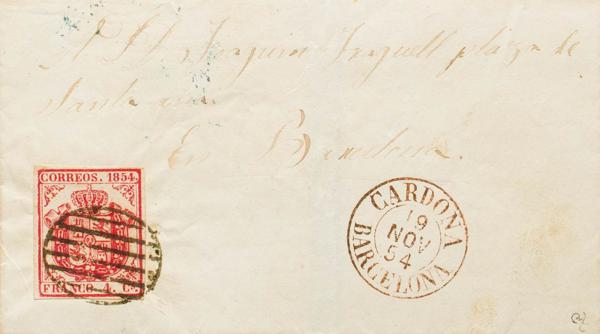 Joaquin plaza de
Santa
En Barcelona.
CORREOS. 1854.
FRANCO 4. Cs.
CARDONA
19
NOV
54
BARCELONA